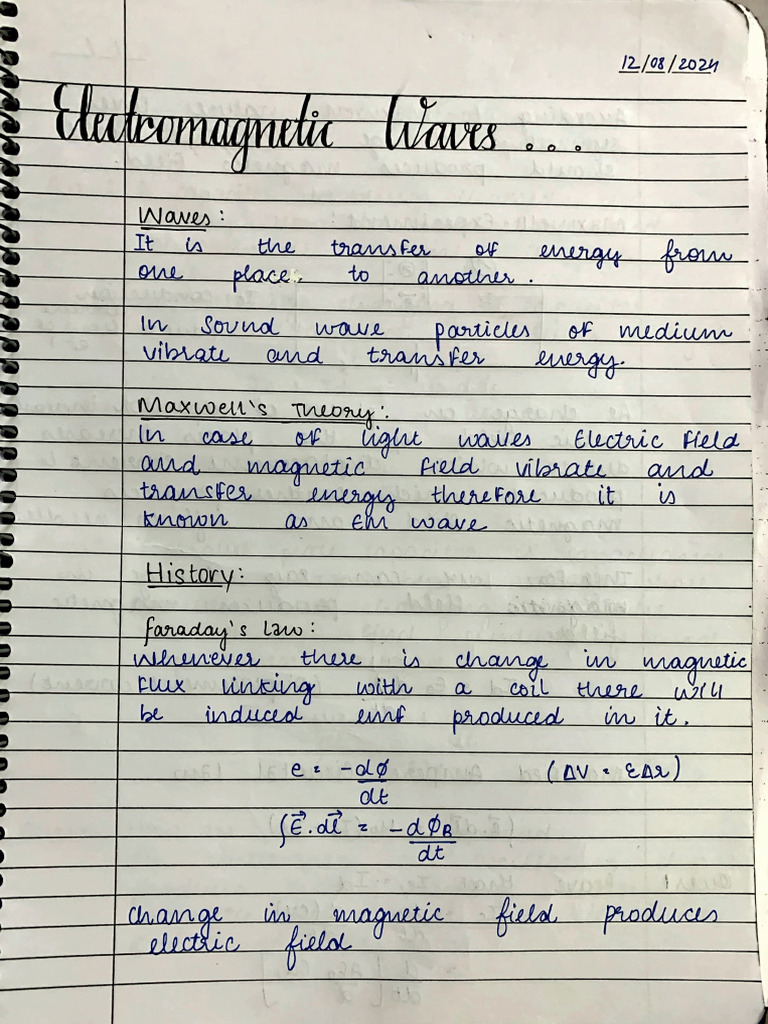 12/08/2024
Electromagnetic Waves...
Waves:
It is the transfer of energy from
one place to another.
In sound wave particles of medium
vibrate and transfer energy.
Maxwell's Theory:
In case of light waves Electric field
and magnetic field vibrate and
transfer energy therefore it is
known as EM wave
History:
faraday's law:
Whenever there is change in magnetic
flux linking with a coil there will
be induced emf produced in it.
e = -dφ/dt (ΔV = EΔr)
∫E⃗.dl⃗ = -dφB/dt
change in magnetic field produces
electric field